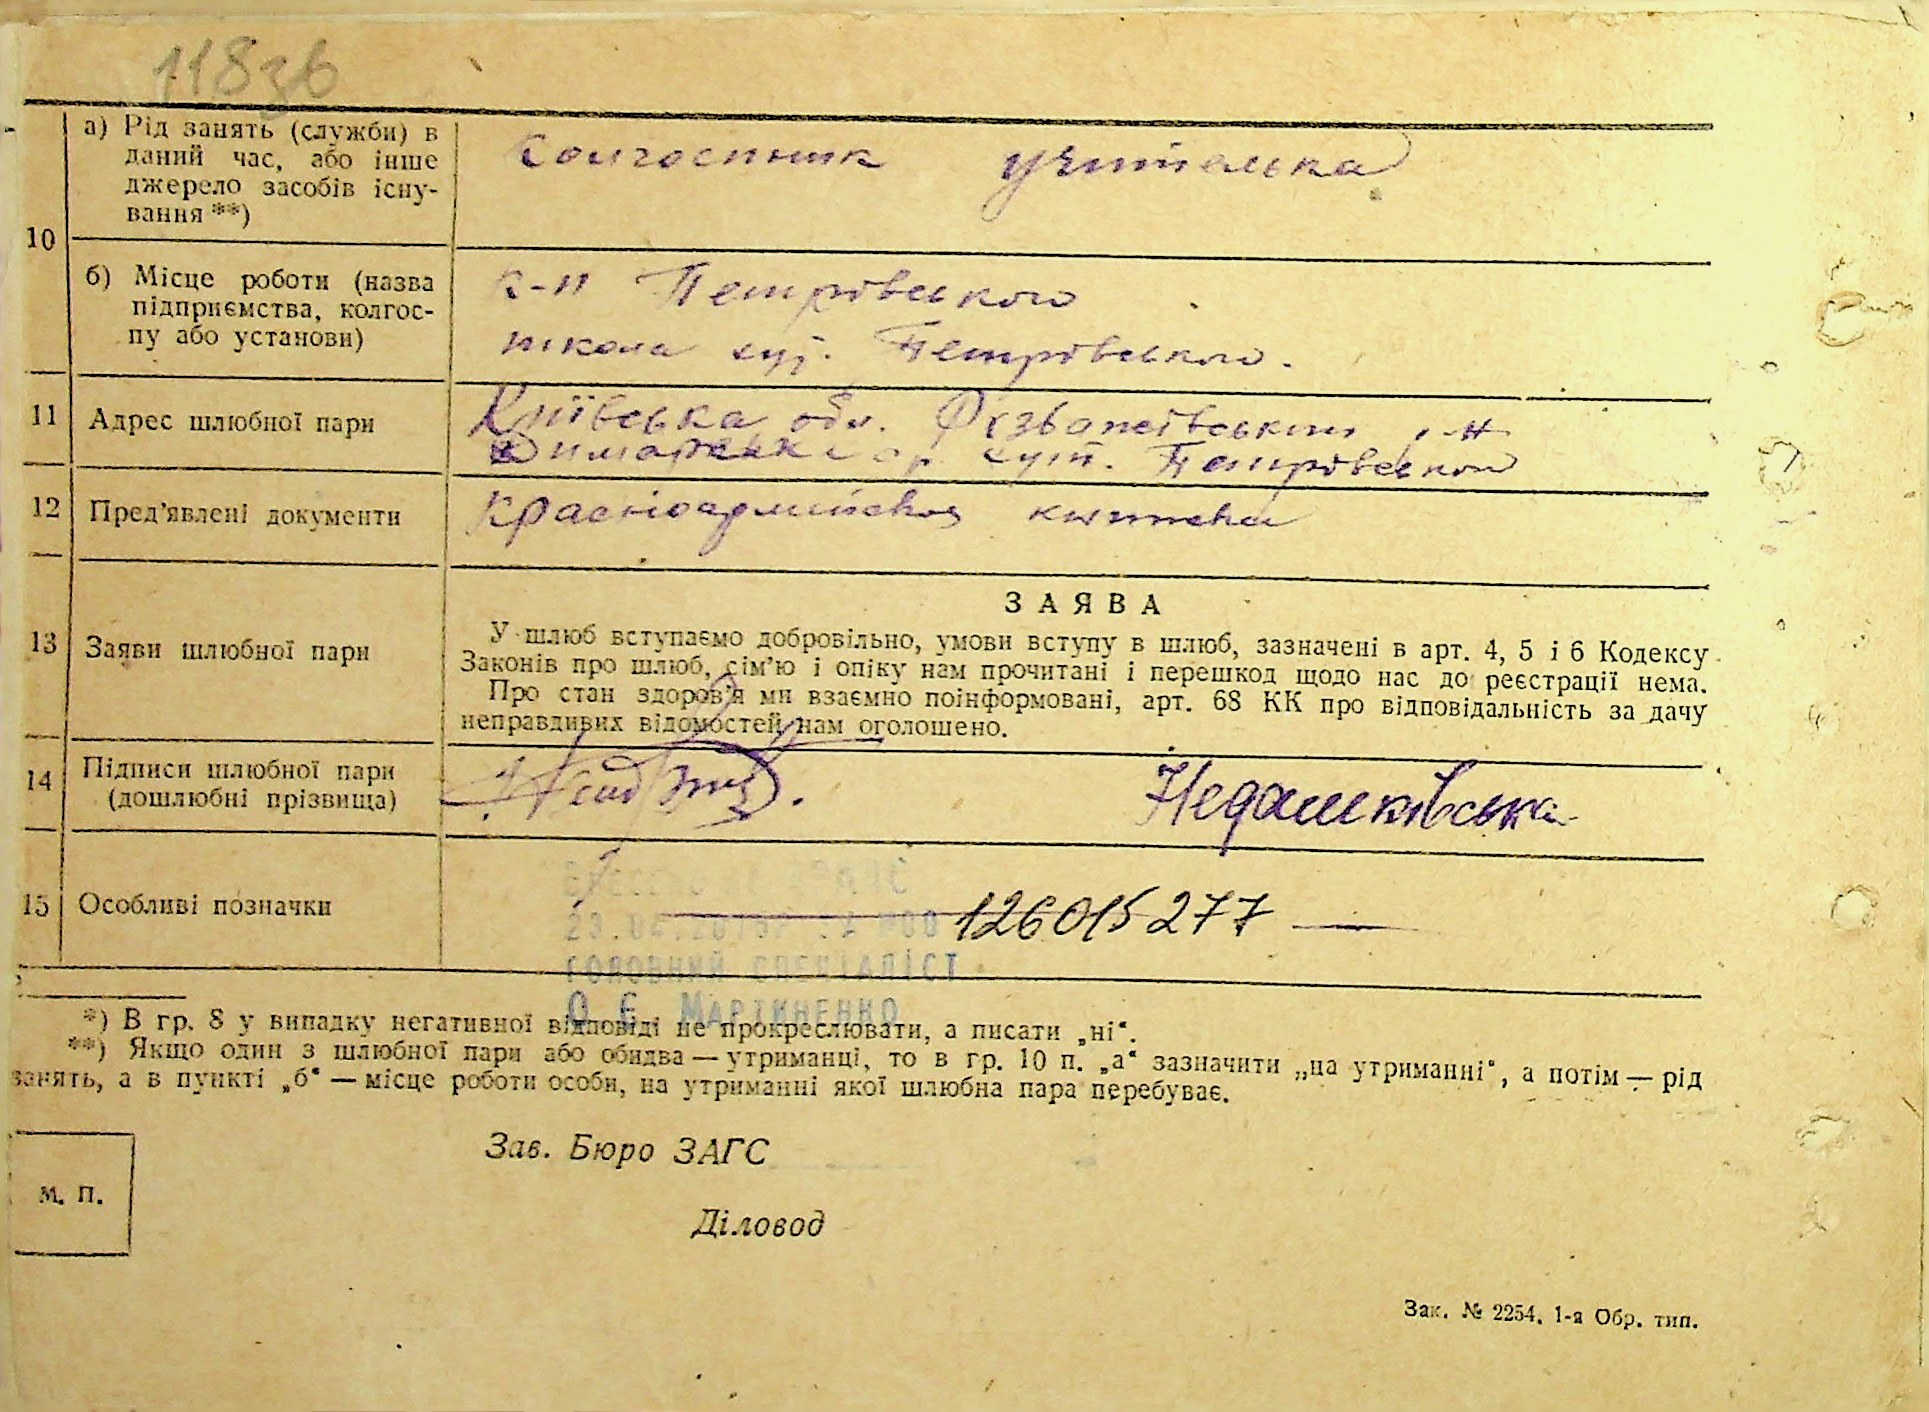 118 зв
10
а) Рід занять (служби) в
даний час, або інше
джерело засобів існу-
вання **)
колгоспник учителька
б) Місце роботи (назва
підприємства, колгос-
пу або установи)
к-п Петровського
школа хут. Петровського.
11 Адрес шлюбної пари
Київська обл. Розважівський р-н
хут. Петровського
12 Пред’явлені документи
Красноармійська книжка
13 Заяви шлюбної пари
ЗАЯВА
У шлюб вступаємо добровільно, умови вступу в шлюб, зазначені в арт. 4, 5 і 6 Кодексу
Законів про шлюб, сім’ю і опіку нам прочитані і перешкод щодо нас до реєстрації нема.
Про стан здоров’я ми взаємно поінформовані, арт. 68 КК про відповідальність за дачу
неправдивих відомостей нам оголошено.
14 Підписи шлюбної пари
(дошлюбні прізвища)
Недашківська
15 Особливі позначки
126015277
ГОЛОВНИЙ СПЕЦІАЛІСТ
О Є МАРТИНЕНКО
*) В гр. 8 у випадку негативної відповіді не прокреслювати, а писати „ні“.
**) Якщо один з шлюбної пари або обидва — утриманці, то в гр. 10 п. „а“ зазначити „на утриманні“, а потім — рід
занять, а в пункті „б“ — місце роботи особи, на утриманні якої шлюбна пара перебуває.
Зав. Бюро ЗАГС
м. п.
Діловод
Зак. № 2254. 1-я Обр. тип.